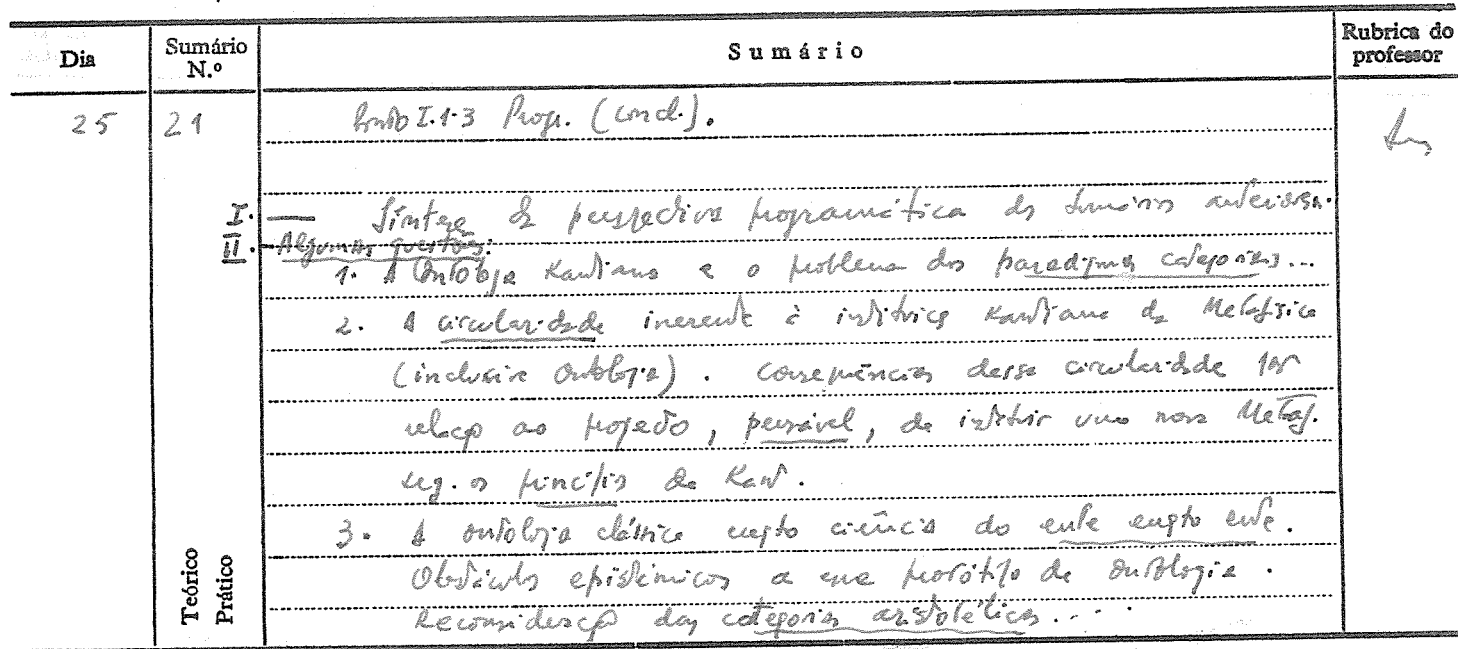 Dia Sumário N.º Sumário Rubrica do professor
25 21 Ponto I.1-3 Prog. (concl.).
I. — Síntese da perspectiva programática do sumário anterior.
II. — Algumas questões:
1. A Ontologia Kantiana e o problema dos paradigmas categoriais...
2. A circularidade inerente à instituição Kantiana da Metafísica
(inclusive ontologia). Consequências dessa circularidade por
relação ao projecto, pensável, de instituir uma nova Metaf.
seg. os princípios de Kant.
3. A ontologia clássica enqto ciência do ente enqto ente.
Obstáculos epistémicos a esse protótipo de Ontologia.
Reconsideração das categorias aristotélicas...
Teórico
Prático